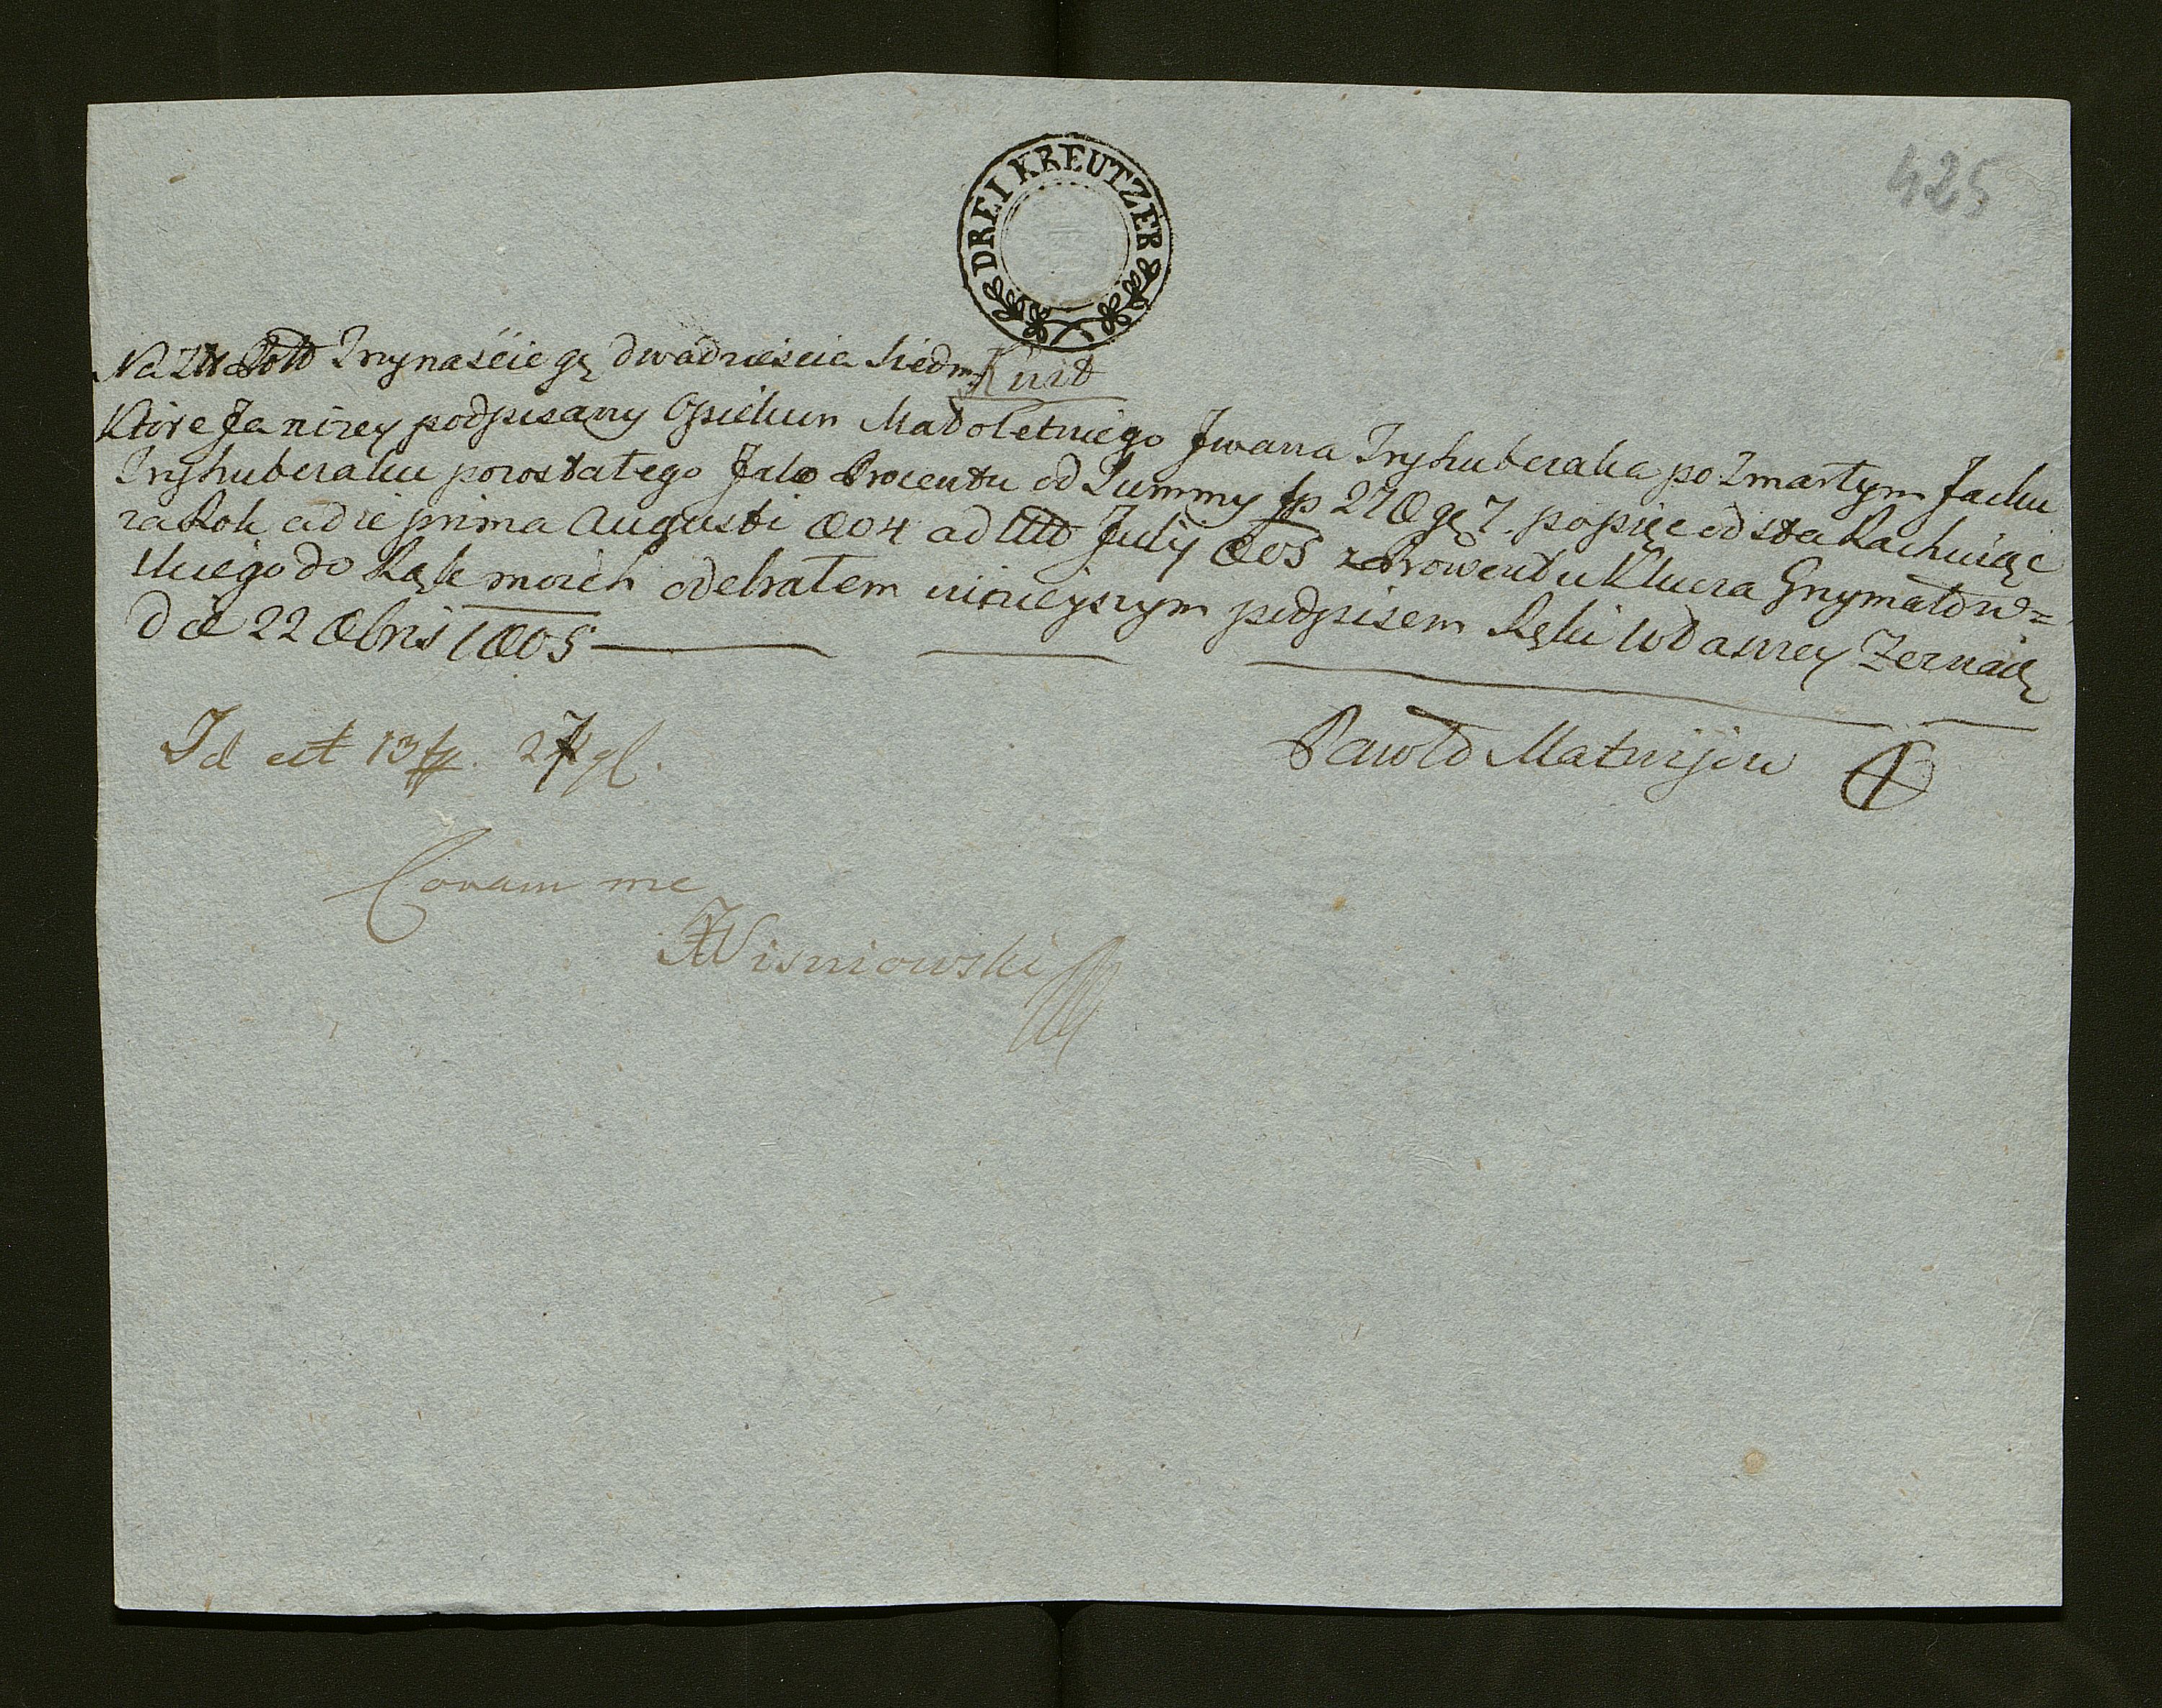 DREI KREUTZER
425
Kwit
Na Złł Pol: Trzynaście gę dwadzieścia siedm
Które Ja niżey podpisany Opiekun Małoletniego Jwana Tryhubczaka po Zmarłym Jacku
Tryhubczaku pozostałego Jako Procentu od Summy fp 270 gę 7. po pięc od sta Rachuiąc
za Rok a die prima Augusti 804 ad Ult Julij 805 z Prowentu Klucza Grzymałow=
skiego do Rąk moich odebrałem ninieyszym podpisem Ręki własney Zeznaię
Die 22 8bris 1805
Id est 13 fp. 27 gl.
Pawło Matwijow
Coram me
JWisniowski